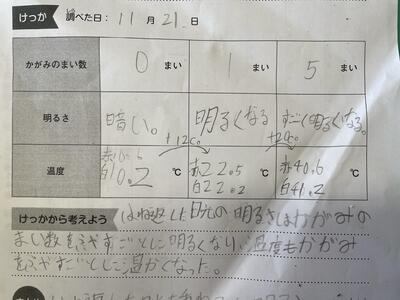 けっか 調べた日： 11 月 21 日
かがみのまい数 0 まい 1 まい 5 まい
明るさ 暗い。 明るくなる すごく明るくなる。
+12℃ +20℃
温度 赤10.6 白10.2 ℃ 赤22.5 白22.2 ℃ 赤40.6 白41.2 ℃
けっかから考えよう はね返した日光の明るさはかがみの
まい数をふやすごとに明るくなり、温度もかがみ
をふやすごとに温かくなった。